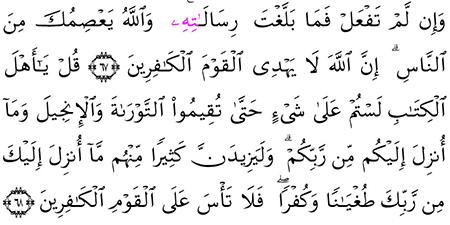 وَإِن لَّمْ تَفْعَلْ فَمَا بَلَّغْتَ رِسَالَٰتِهِۦ وَٱللَّهُ يَعْصِمُكَ مِنَ
ٱلنَّاسِ ۗ إِنَّ ٱللَّهَ لَا يَهْدِى ٱلْقَوْمَ ٱلْكَٰفِرِينَ ﴿٦٧﴾ قُلْ يَٰٓأَهْلَ
ٱلْكِتَٰبِ لَسْتُمْ عَلَىٰ شَىْءٍ حَتَّىٰ تُقِيمُوا۟ ٱلتَّوْرَىٰةَ وَٱلْإِنجِيلَ وَمَآ
أُنزِلَ إِلَيْكُم مِّن رَّبِّكُمْ ۗ وَلَيَزِيدَنَّ كَثِيرًا مِّنْهُم مَّآ أُنزِلَ إِلَيْكَ
مِن رَّبِّكَ طُغْيَٰنًا وَكُفْرًا ۖ فَلَا تَأْسَ عَلَى ٱلْقَوْمِ ٱلْكَٰفِرِينَ ﴿٦٨﴾